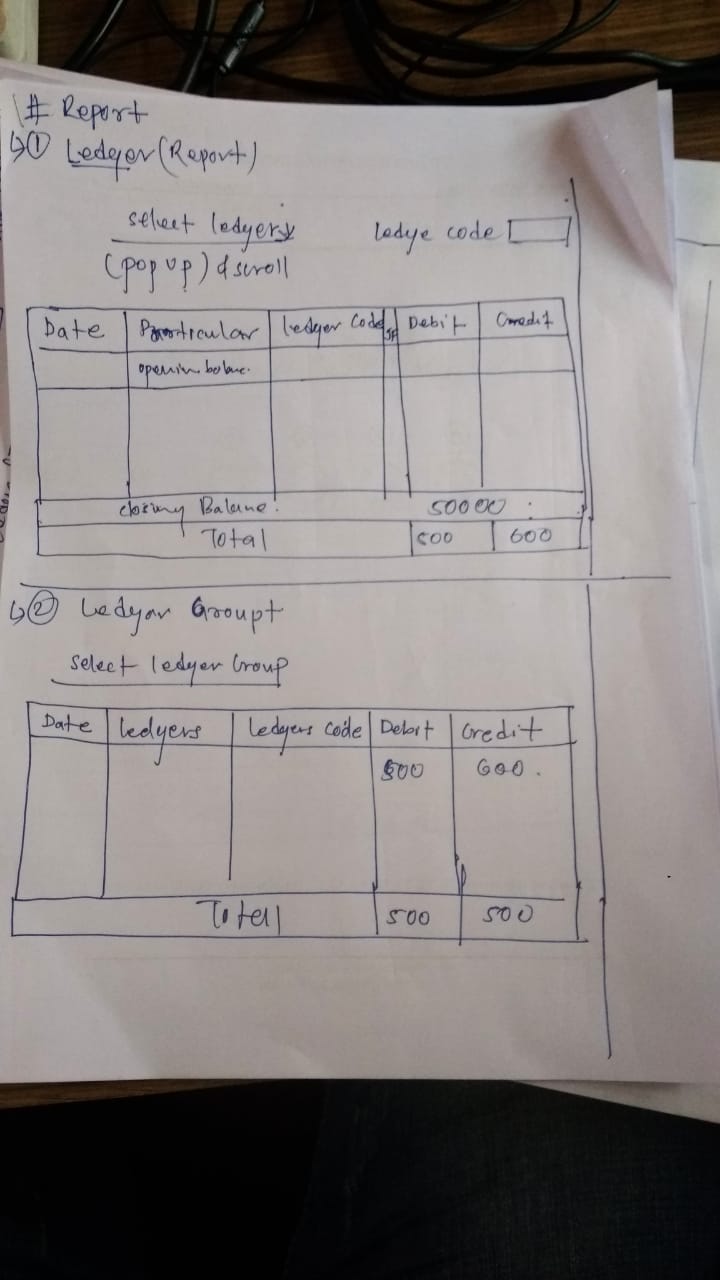 # Report
↳① Ledger (Report)
select ledgers ledye code
(pop up) & scroll
Date Particular ledger Code Debit Credit
openin balanc.
closing Balance. 50000
Total 500 600
↳② Ledger Groupt
select ledger Group
Date ledyers ledgers code Debit Credit
500 600.
Total 500 500